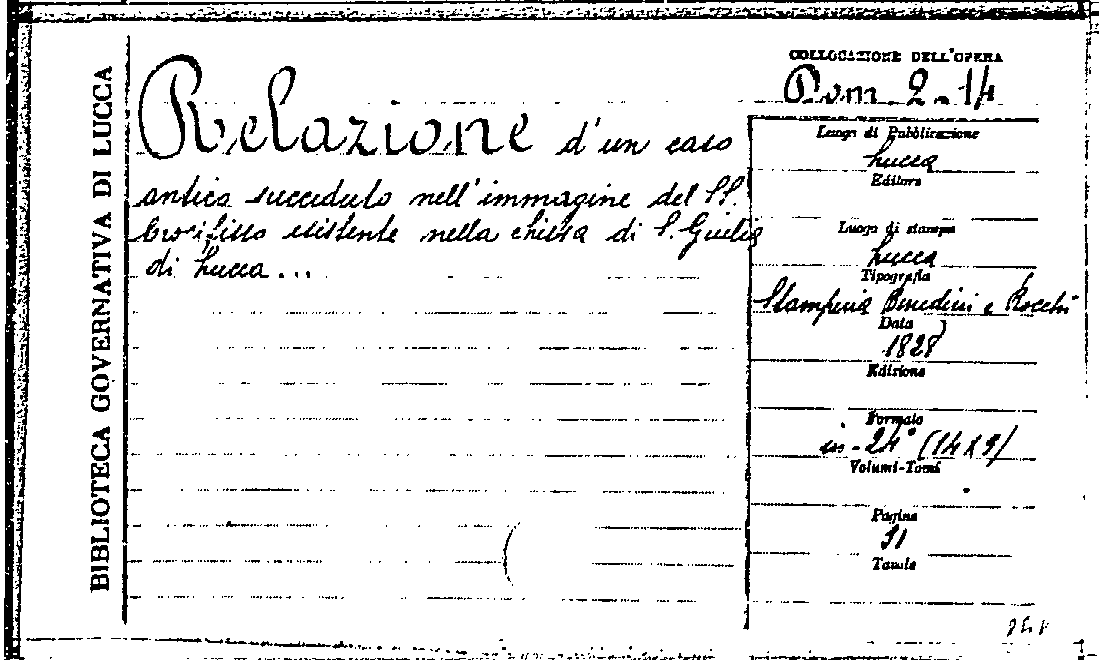 BIBLIOTECA GOVERNATIVA DI LUCCA
Relazione d'un caso
antico succeduto nell'immagine del SS.
Crocifisso esistente nella chiesa di S. Giulia
di Lucca...
COLLOCAZIONE DELL'OPERA
Rom. 2.14
Luogo di Pubblicazione
Lucca
Editore
Luogo di stampa
Lucca
Tipografia
Stamperia Benedini e Rocchi
Data
1828
Edizione
Formato
in-24° (14x9)
Volumi-Tomi
Pagine
31
Tavole